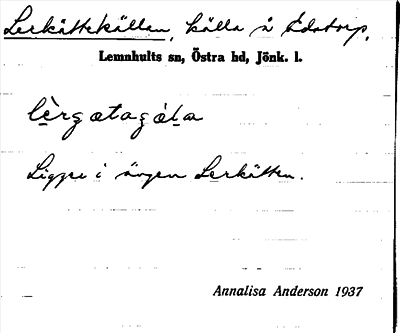 Lerkättekällan, källa å Edstorp.
Lemnhults sn, Östra hd, Jönk. l.
lèrgatagála
Ligger i ängen Lerkätten.
Annalisa Anderson 1937